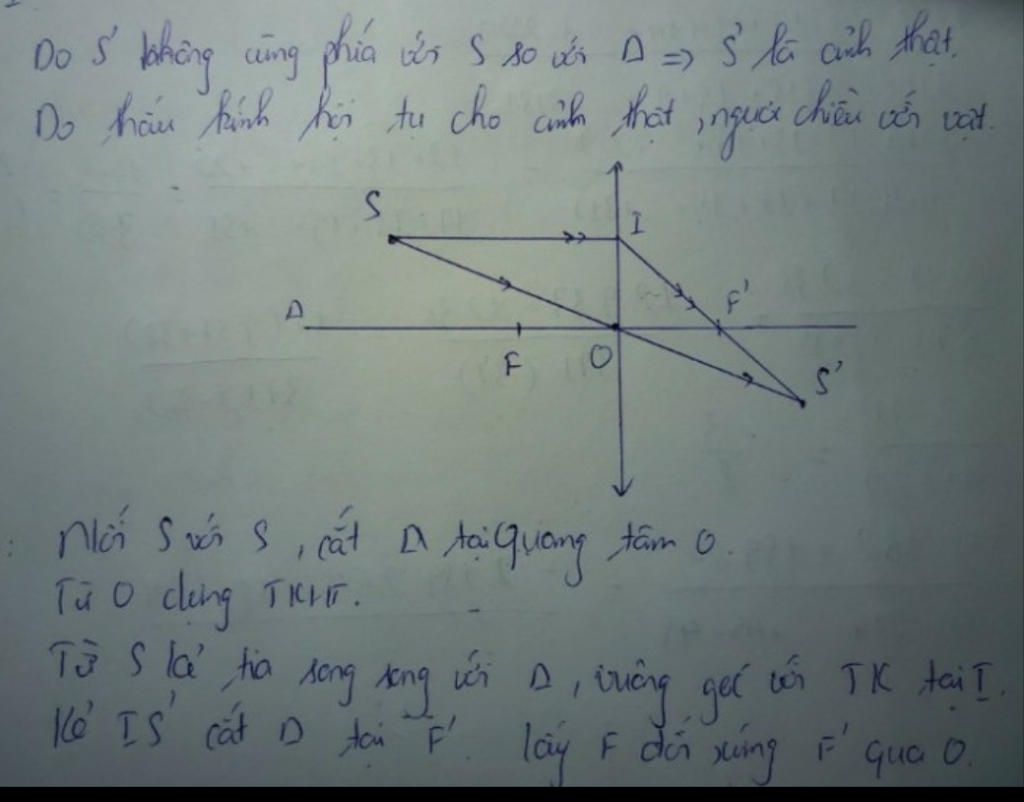 Do S' không cùng phía với S so với Δ => S' là ảnh thật.
Do thấu kính hội tụ cho ảnh thật, ngược chiều với vật.
S
I
Δ
F'
F
O
S'
: Nối S với S, cắt Δ tại Quang tâm O.
Từ O dựng TKHT.
Từ S kẻ tia song song với Δ, vuông góc với TK tại I.
Kẻ IS' cắt Δ tại F'. lấy F đối xứng F' qua O.